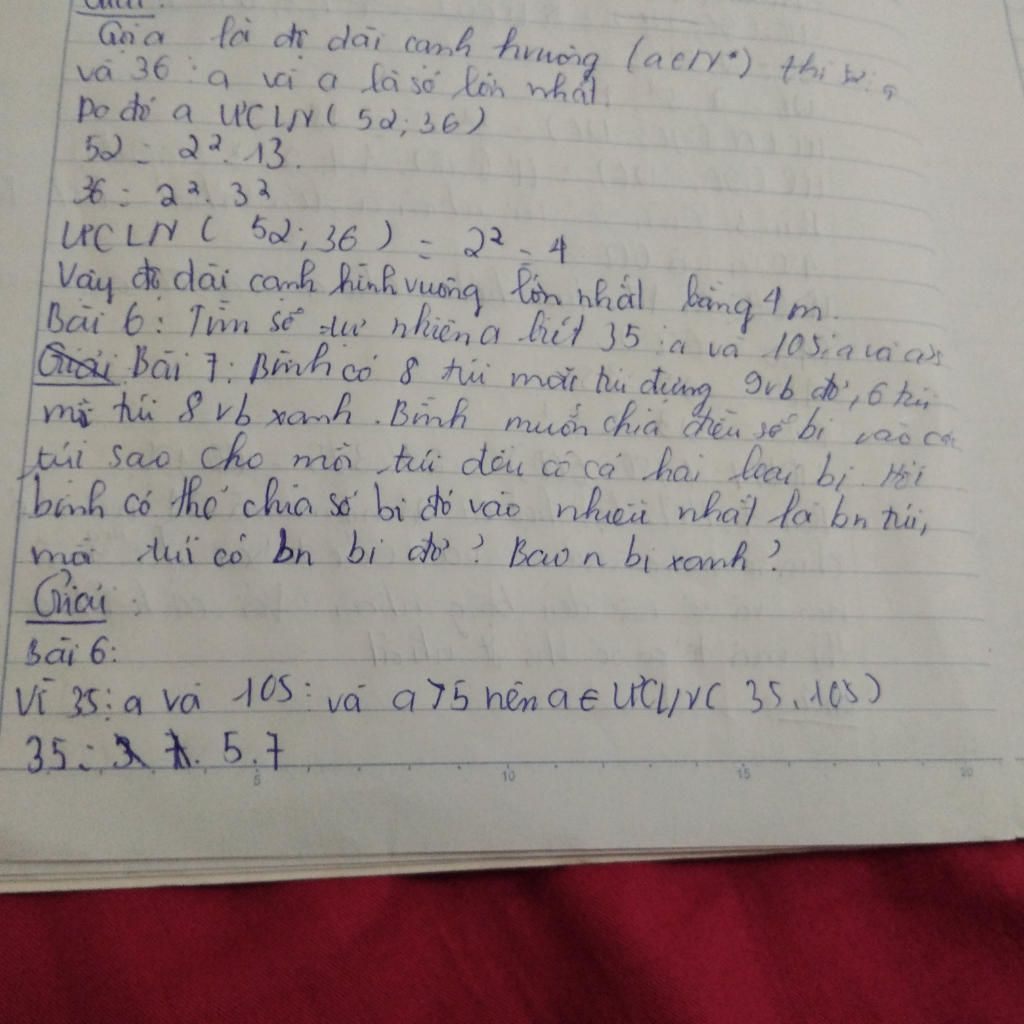 Giải:
Gọi a là độ dài cạnh hvuông (a∈N*) thì 52⋮a
và 36⋮a và a là số lớn nhất.
Do đó a ƯCLN(52;36)
52 = 2². 13.
36 = 2². 3²
ƯCLN( 52; 36) = 2² = 4
Vậy độ dài cạnh hình vuông lớn nhất bằng 4m.
Bài 6: Tìm số tự nhiên a biết 35⋮a và 105⋮a và a>5
Giải Bài 7: Bình có 8 túi mỗi túi đựng 9vb đỏ, 6 túi
mỗi túi 8 vb xanh. Bình muốn chia đều số bi vào các
túi sao cho mỗi túi đều có cả hai loại bi. Hỏi
bình có thể chia số bi đó vào nhiều nhất là bn túi,
mỗi túi có bn bi đỏ? Bao n bi xanh?
Giải:
Bài 6:
Vì 35⋮a và 105⋮ và a>5 nên a∈ ƯCLN( 35.105)
35 = 5.7
5 10 15 20